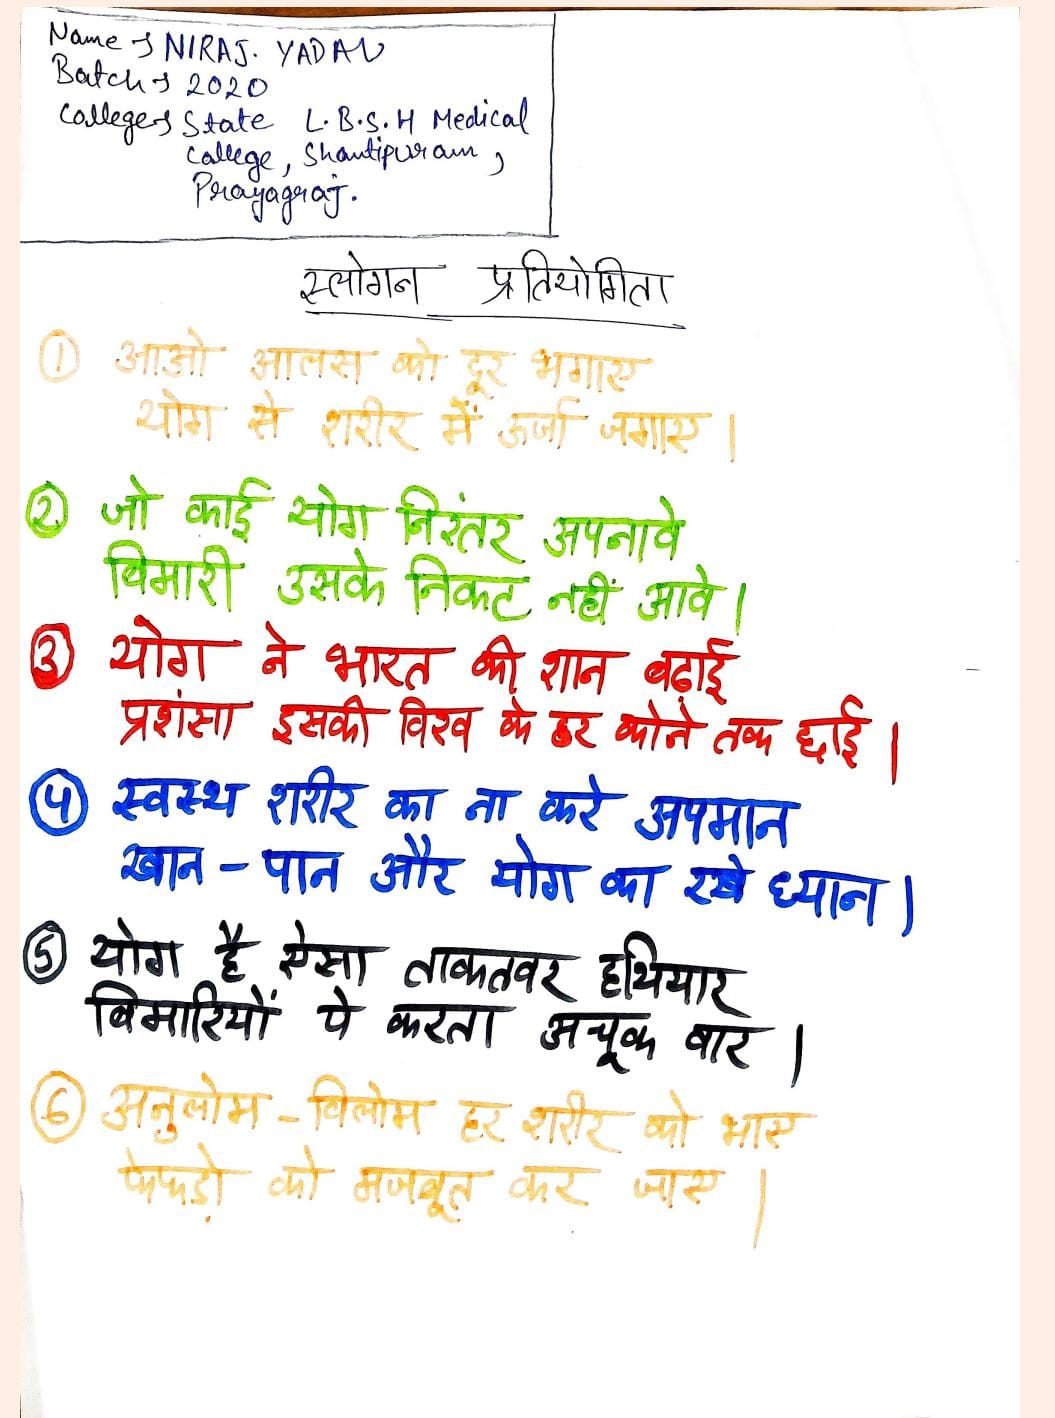 Name → NIRAJ. YADAV
Batch → 2020
College → State L.B.S.H Medical
College, Shantipuram,
Prayagraj.
स्लोगन प्रतियोगिता
① आओ आलस को दूर भगाए
योग से शरीर में ऊर्जा जगाए ।
② जो काई योग निरंतर अपनावे
बिमारी उसके निकट नहीं आवे ।
③ योग ने भारत की शान बढ़ाई
प्रशंसा इसकी विश्व के हर कोने तक छाई ।
④ स्वस्थ शरीर का ना करे अपमान
खान - पान और योग का रखे ध्यान ।
⑤ योग है ऐसा ताकतवर हथियार
बिमारियों पे करता अचूक वार ।
⑥ अनुलोम - विलोम हर शरीर को भाए
फेफड़ो को मजबूत कर जाए ।